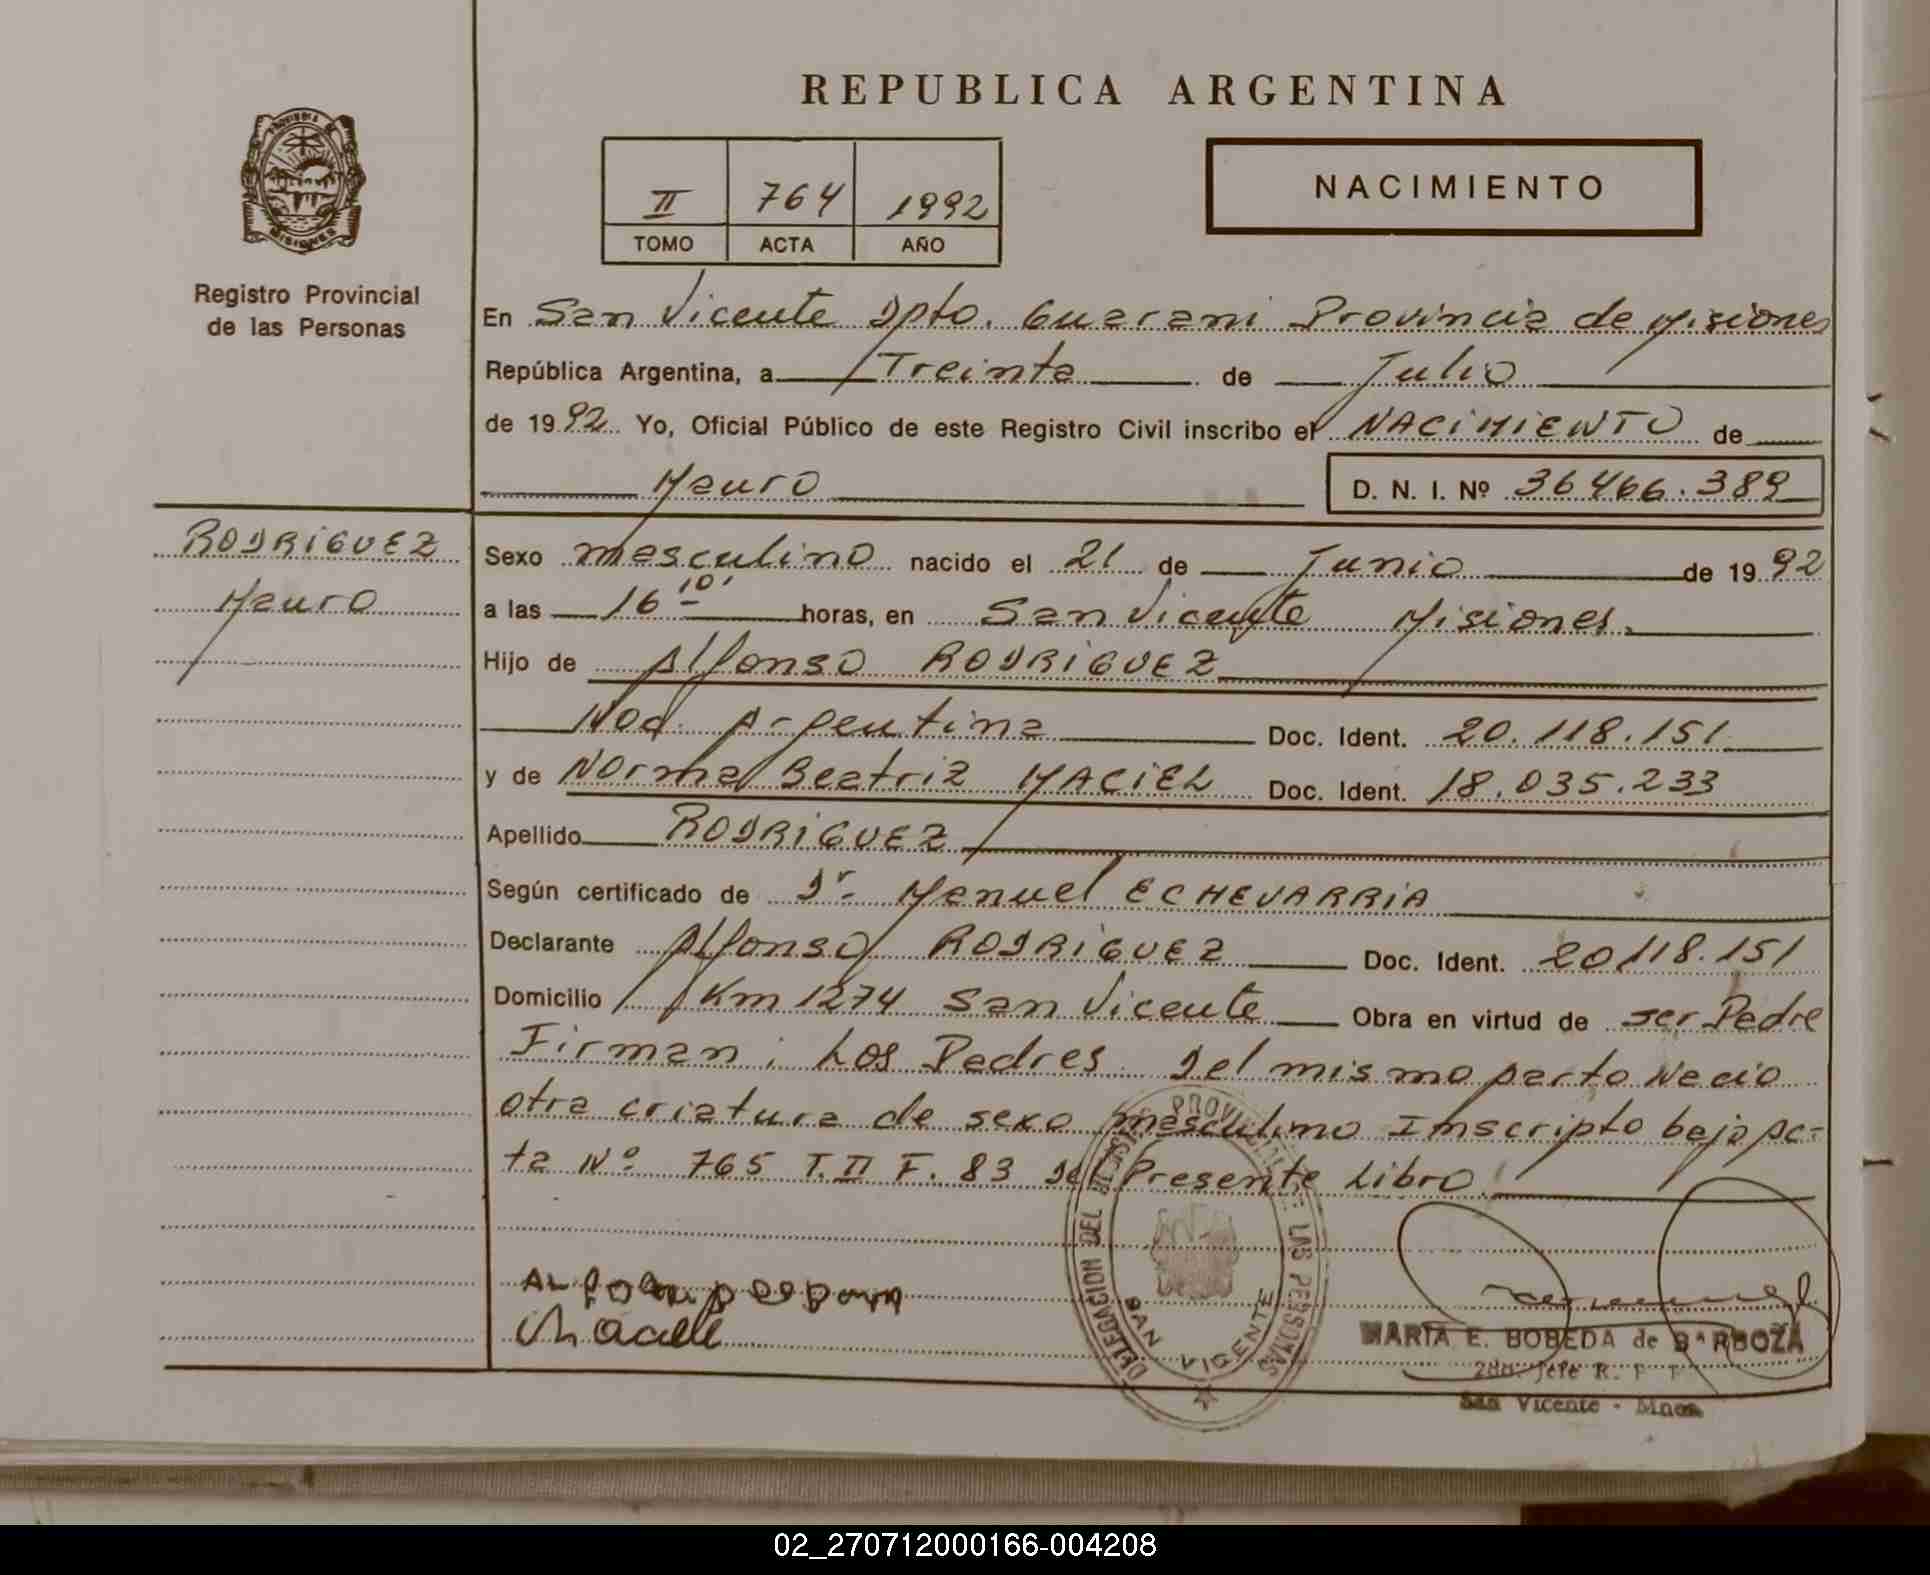 REPUBLICA ARGENTINA
PROVINCIA DE
MISIONES
Registro Provincial
de las Personas
II 764 1992
TOMO ACTA AÑO
NACIMIENTO
En San Vicente Dpto. Guarani Provincia de Misiones
República Argentina, a Treinta de Julio
de 1992 Yo, Oficial Público de este Registro Civil inscribo el NACIMIENTO de
Mauro D. N. I. Nº 36466.389
RODRIGUEZ
Mauro
Sexo masculino nacido el 21 de Junio de 1992
a las 16 10' horas, en San Vicente Misiones.
Hijo de Alfonso RODRIGUEZ
Nac. Argentina Doc. Ident. 20.118.151
y de Norma Beatriz MACIEL Doc. Ident. 18.035.233
Apellido RODRIGUEZ
Según certificado de Dr. Manuel ECHEVARRIA
Declarante Alfonso RODRIGUEZ Doc. Ident. 20118.151
Domicilio Km 1274 San Vicente Obra en virtud de ser Padre
Firman: Los Padres. Del mismo parto Nacio
otra criatura de sexo masculino Inscripto bajo Ac-
ta Nº 765 T. II F. 83 del Presente Libro.
DELEGACION DEL REGISTRO PROVINCIAL DE LAS PERSONAS
SAN VICENTE
MARIA E. BOBEDA de BARBOZA
2do. Jefe R. P. P.
San Vicente - Mnes.
02_270712000166-004208